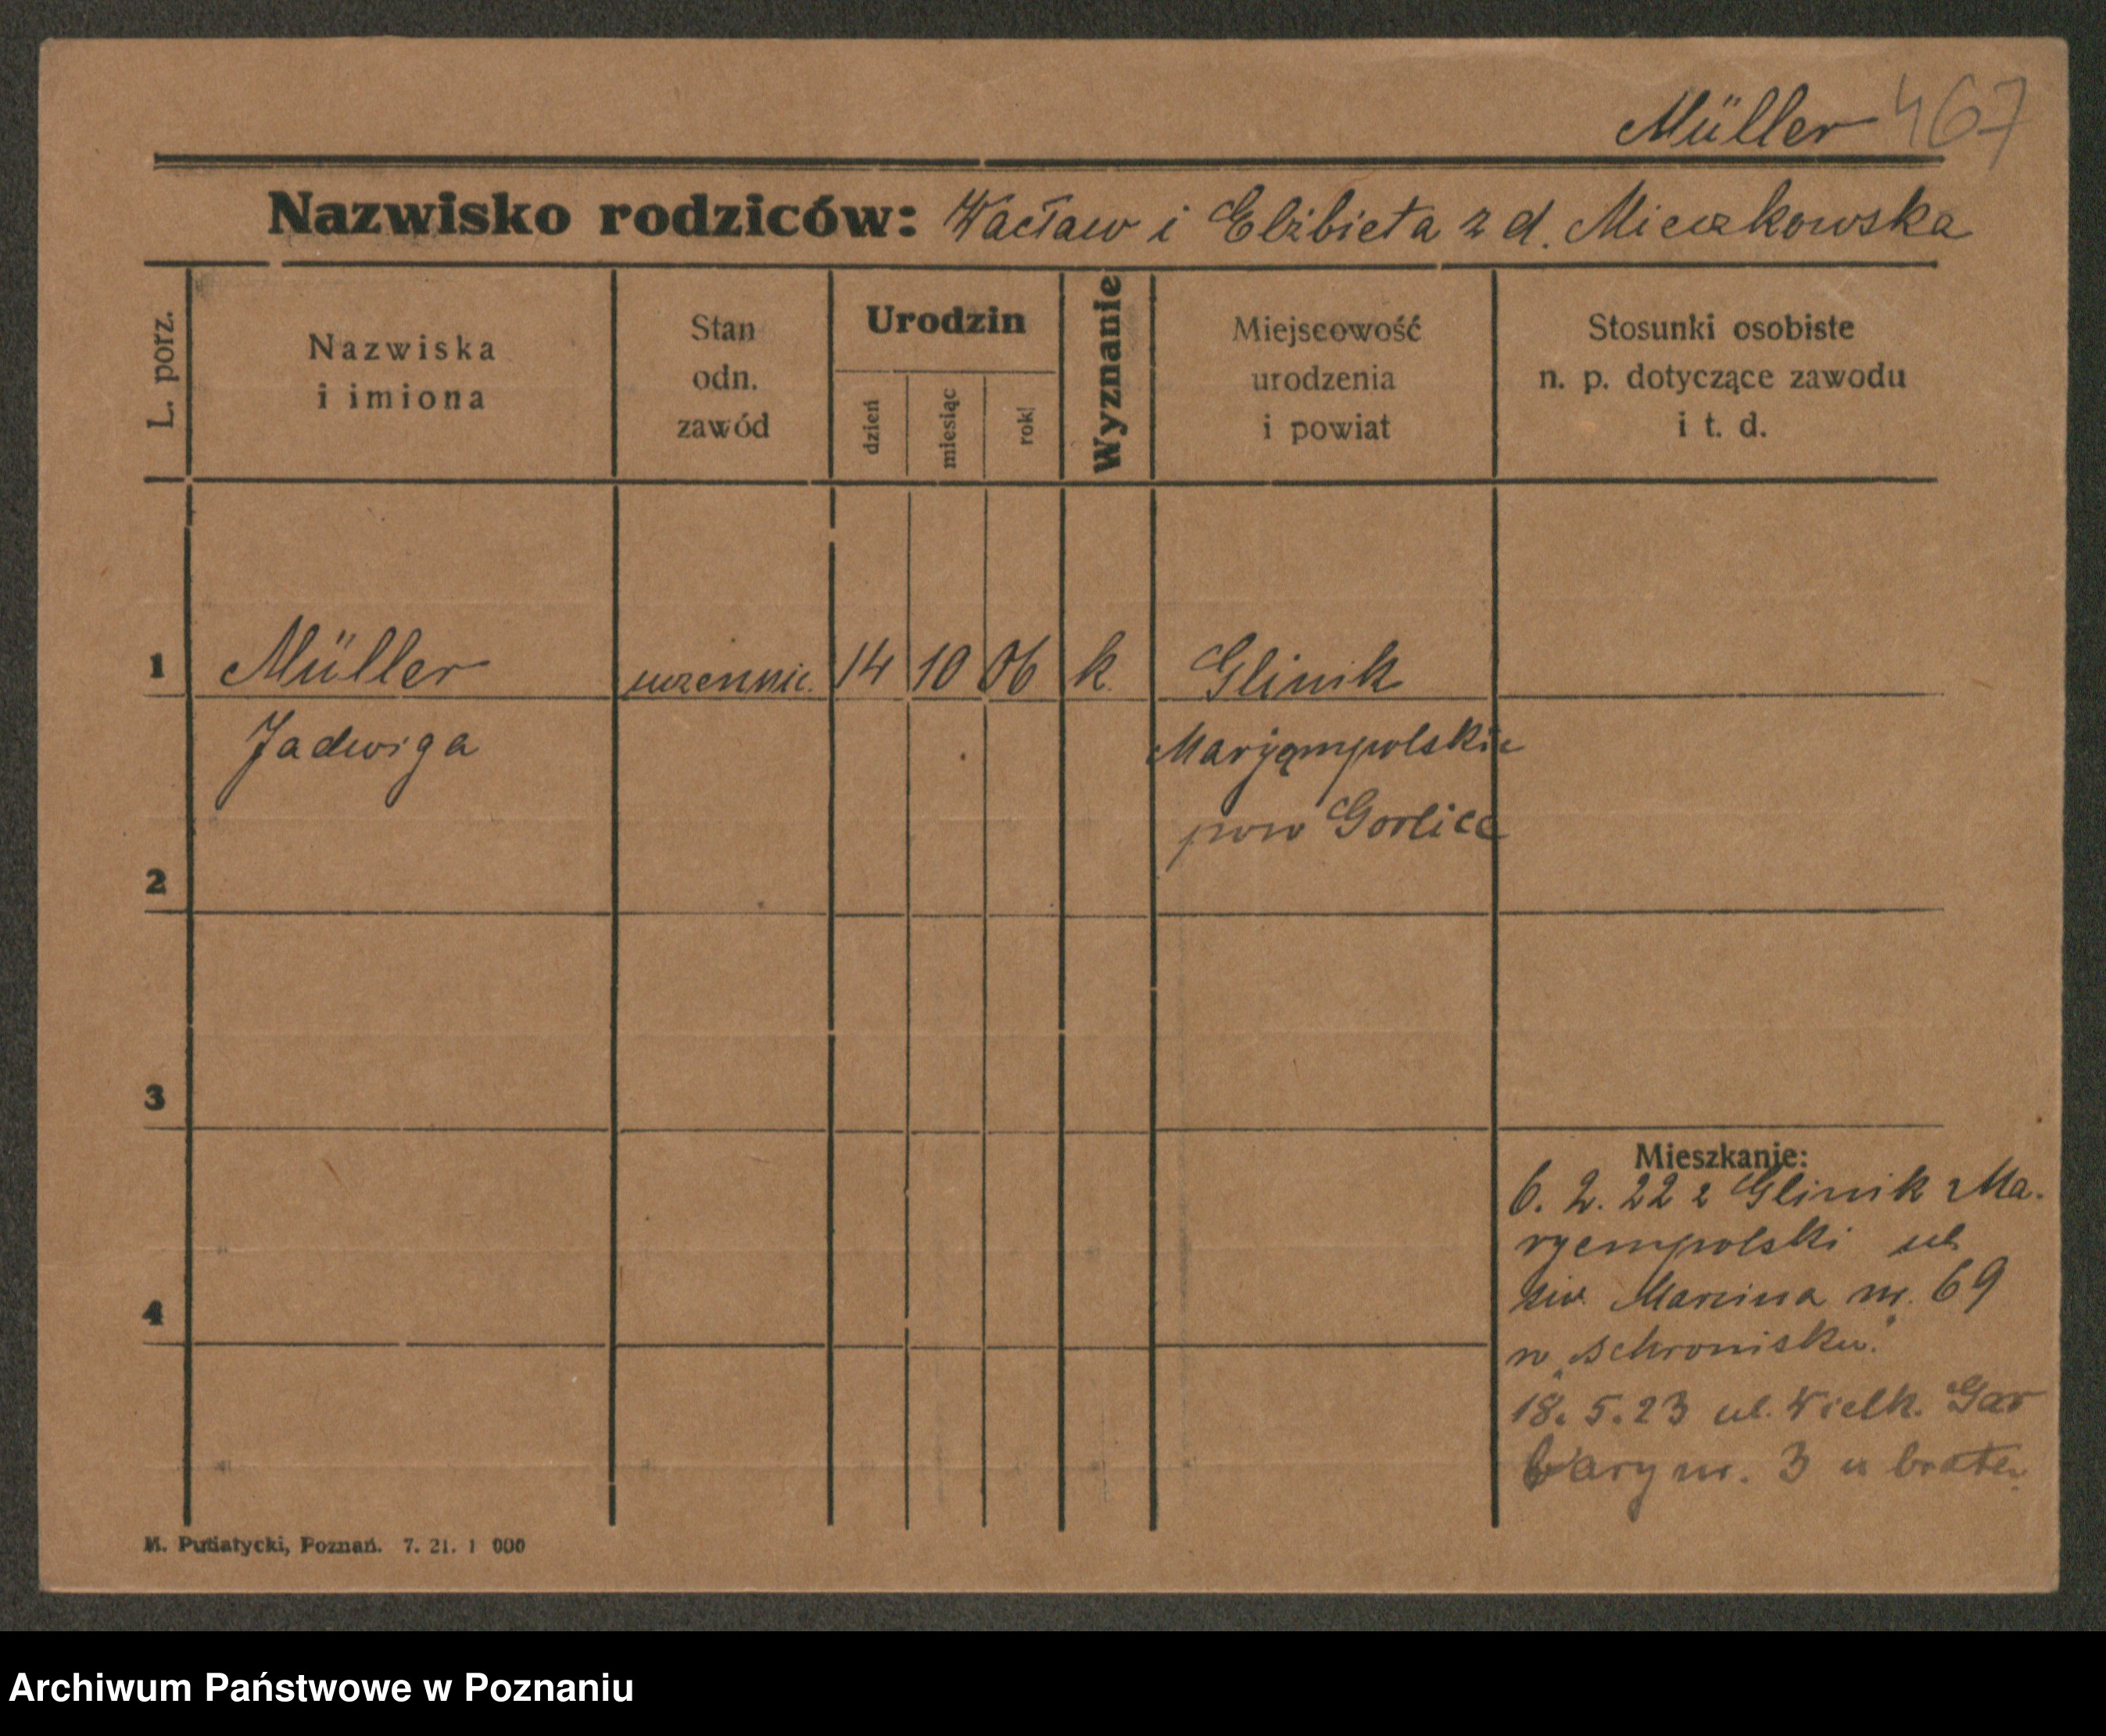 Müller 467
Nazwisko rodziców: Wacław i Elżbieta z d. Mieczkowska
L. porz.
Nazwiska
i imiona
Stan
odn.
zawód
Urodzin
dzień
miesiąc
rok
Wyznanie
Miejscowość
urodzenia
i powiat
Stosunki osobiste
n. p. dotyczące zawodu
i t. d.
1 Müller uczennic. 14 10 06 k. Glinik
Jadwiga Maryampolskie
pow Gorlice
2
3
Mieszkanie:
6. 2. 22 z Glinik Ma-
ryempolski ul
św. Marcina nr. 69
w „schronisku“
4
18. 5. 23 ul. Wielk. Gar
bary nr. 3 u brata.
M. Putiatycki, Poznań. 7. 21. 1 000
Archiwum Państwowe w Poznaniu